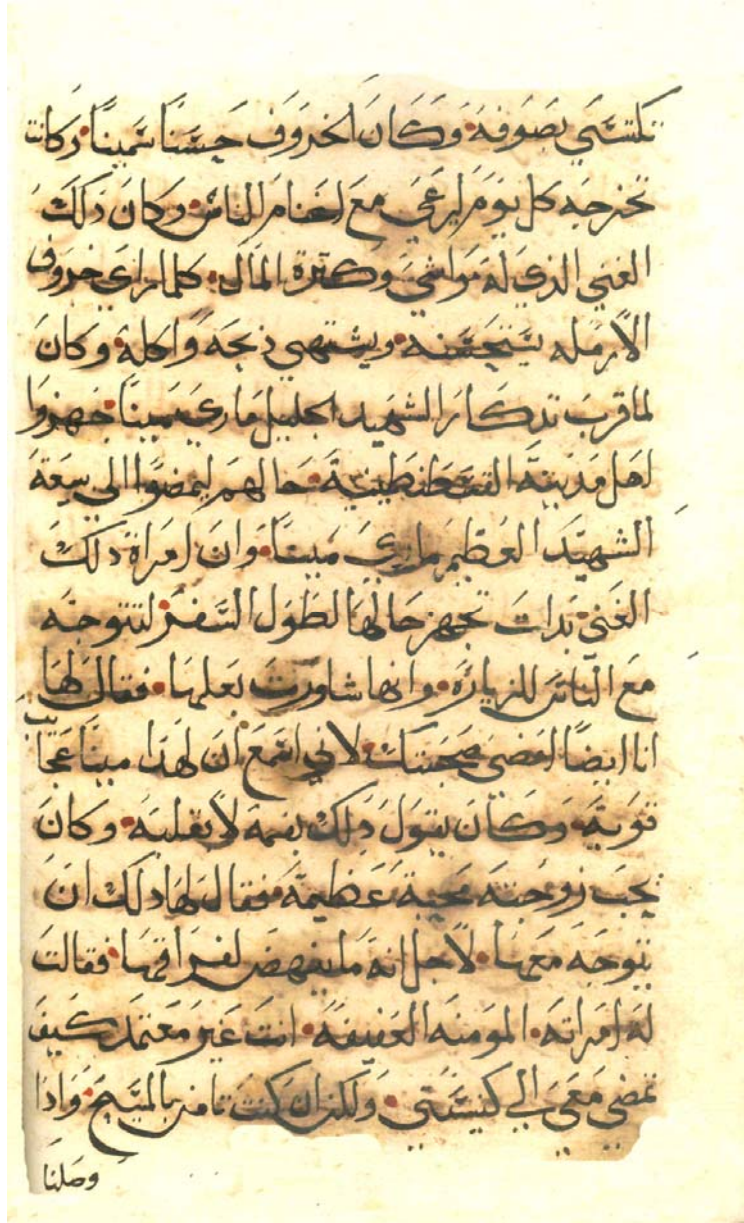 تكتسي بصوفه وكان الخروف حسنًا سمينًا وكانت
تخرجه كل يوم ليرعى مع اغنام الناس وكان ذلك
الغني الذي له مواشي وكثرة المال كلما راي خروف
الارمله يستحسنه ويشتهي ذبحه واكله وكان
لما قرب تدكار الشهيد الجليل ماري مينا جهزوا
اهل مدينة القسطنطينية حالهم ليمضوا الي بيعة
الشهيد العظيم ماري مينا وان امراة دلك
الغني بدات تجهز حالها لطول السفر لتتوجه
مع الناس للزياره وانها شاورت بعلها فقال لها
انا ايضًا امضي صحبتك لاني اسمع ان لهدا مينا عجايب
قوية وكان يقول دلك بفمه لا بقلبه وكان
يحب زوجته محبة عظيمة فقال لها دلك ان
يتوجه معها لاجل انه ما ينهض لفراقها فقالت
له امراته المومنه العفيفه انت غير معتمد كيف
تمضي معي الي كنيستي ولكن ان كنت تامن بالمسيح وادا
وصلنا